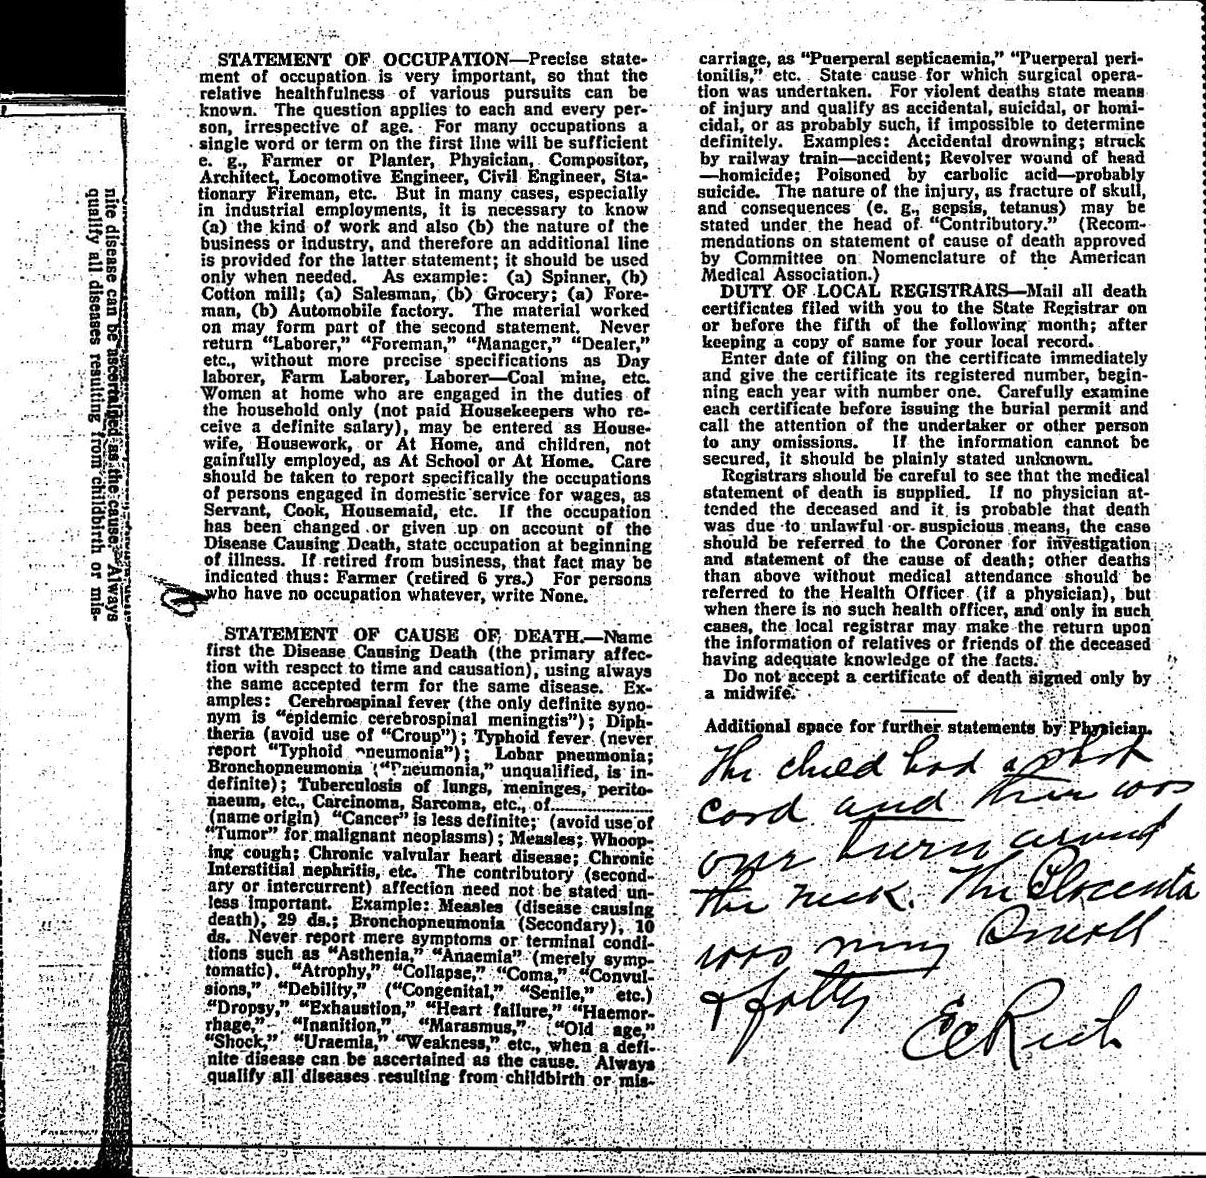 STATEMENT OF OCCUPATION—Precise state-
ment of occupation is very important, so that the
relative healthfulness of various pursuits can be
known. The question applies to each and every per-
son, irrespective of age. For many occupations a
single word or term on the first line will be sufficient
e. g., Farmer or Planter, Physician, Compositor,
Architect, Locomotive Engineer, Civil Engineer, Sta-
tionary Fireman, etc. But in many cases, especially
in industrial employments, it is necessary to know
(a) the kind of work and also (b) the nature of the
business or industry, and therefore an additional line
is provided for the latter statement; it should be used
only when needed. As example: (a) Spinner, (b)
Cotton mill; (a) Salesman, (b) Grocery; (a) Fore-
man, (b) Automobile factory. The material worked
on may form part of the second statement. Never
return "Laborer," "Foreman," "Manager," "Dealer,"
etc., without more precise specifications as Day
laborer, Farm Laborer, Laborer—Coal mine, etc.
Women at home who are engaged in the duties of
the household only (not paid Housekeepers who re-
ceive a definite salary), may be entered as House-
wife, Housework, or At Home, and children, not
gainfully employed, as At School or At Home. Care
should be taken to report specifically the occupations
of persons engaged in domestic service for wages, as
Servant, Cook, Housemaid, etc. If the occupation
has been changed or given up on account of the
Disease Causing Death, state occupation at beginning
of illness. If retired from business, that fact may be
indicated thus: Farmer (retired 6 yrs.) For persons
who have no occupation whatever, write None.
STATEMENT OF CAUSE OF DEATH.—Name
first the Disease Causing Death (the primary affec-
tion with respect to time and causation), using always
the same accepted term for the same disease. Ex-
amples: Cerebrospinal fever (the only definite syno-
nym is "epidemic cerebrospinal meningtis"); Diph-
theria (avoid use of "Croup"); Typhoid fever (never
report "Typhoid pneumonia"); Lobar pneumonia;
Bronchopneumonia ("Pneumonia," unqualified, is in-
definite); Tuberculosis of lungs, meninges, perito-
naeum, etc., Carcinoma, Sarcoma, etc., of..............
(name origin) "Cancer" is less definite; (avoid use of
"Tumor" for malignant neoplasms); Measles; Whoop-
ing cough; Chronic valvular heart disease; Chronic
Interstitial nephritis, etc. The contributory (second-
ary or intercurrent) affection need not be stated un-
less important. Example: Measles (disease causing
death), 29 ds.; Bronchopneumonia (Secondary), 10
ds. Never report mere symptoms or terminal condi-
tions such as "Asthenia," "Anaemia" (merely symp-
tomatic), "Atrophy," "Collapse," "Coma," "Convul-
sions," "Debility," ("Congenital," "Senile," etc.)
"Dropsy," "Exhaustion," "Heart failure," "Haemor-
rhage," "Inanition," "Marasmus," "Old age,"
"Shock," "Uraemia," "Weakness," etc., when a defi-
nite disease can be ascertained as the cause. Always
qualify all diseases resulting from childbirth or mis-
carriage, as "Puerperal septicaemia," "Puerperal peri-
tonitis," etc. State cause for which surgical opera-
tion was undertaken. For violent deaths state means
of injury and qualify as accidental, suicidal, or homi-
cidal, or as probably such, if impossible to determine
definitely. Examples: Accidental drowning; struck
by railway train—accident; Revolver wound of head
—homicide; Poisoned by carbolic acid—probably
suicide. The nature of the injury, as fracture of skull,
and consequences (e. g., sepsis, tetanus) may be
stated under the head of "Contributory." (Recom-
mendations on statement of cause of death approved
by Committee on Nomenclature of the American
Medical Association.)
DUTY OF LOCAL REGISTRARS—Mail all death
certificates filed with you to the State Registrar on
or before the fifth of the following month; after
keeping a copy of same for your local record.
Enter date of filing on the certificate immediately
and give the certificate its registered number, begin-
ning each year with number one. Carefully examine
each certificate before issuing the burial permit and
call the attention of the undertaker or other person
to any omissions. If the information cannot be
secured, it should be plainly stated unknown.
Registrars should be careful to see that the medical
statement of death is supplied. If no physician at-
tended the deceased and it is probable that death
was due to unlawful or suspicious means, the case
should be referred to the Coroner for investigation
and statement of the cause of death; other deaths
than above without medical attendance should be
referred to the Health Officer (if a physician), but
when there is no such health officer, and only in such
cases, the local registrar may make the return upon
the information of relatives or friends of the deceased
having adequate knowledge of the facts.
Do not accept a certificate of death signed only by
a midwife.
Additional space for further statements by Physician.
The child had a short
cord and there was
one turn around
the neck. The Placenta
was very small
& fatty
EC Rich
nite disease can be ascertained as the cause. Always
qualify all diseases resulting from childbirth or mis-